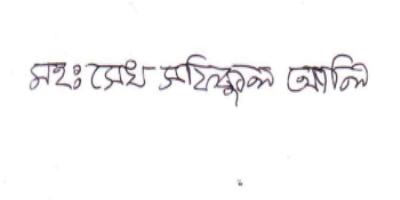 মহঃ সেখ সফিকুল আলি